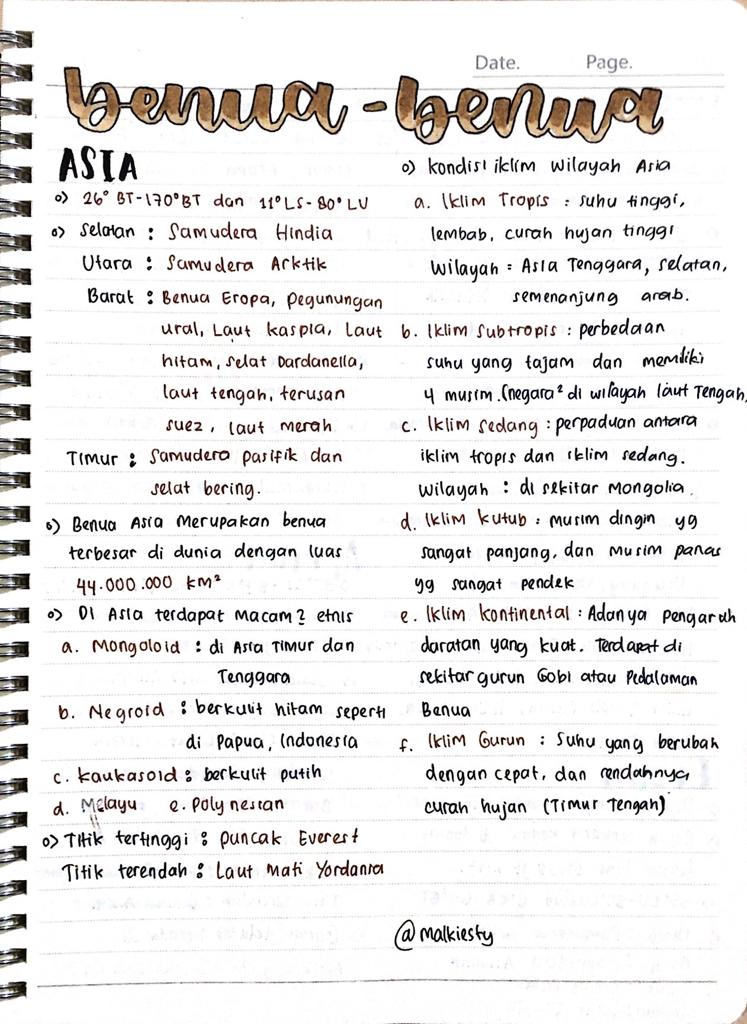 Date. Page.
benua-benua
ASIA
o) 26° BT-170°BT dan 11°LS-80°LU
o) Selatan : Samudera Hindia
Utara : Samudera Arktik
Barat : Benua Eropa, Pegunungan
ural, Laut kaspia, Laut
hitam, selat Dardanella,
laut tengah, terusan
suez, laut merah
Timur : Samudera pasifik dan
selat bering.
o) Benua Asia Merupakan benua
terbesar di dunia dengan luas
44.000.000 km²
o) Di Asia terdapat Macam2 etnis
a. Mongoloid : di Asia Timur dan
Tenggara
b. Negroid : berkulit hitam seperti
di Papua, Indonesia
c. kaukasoid : berkulit putih
d. Melayu e. Polynesian
o) Titik tertinggi : puncak Everest
Titik terendah : Laut Mati Yordania
o) kondisi iklim wilayah Asia
a. Iklim Tropis : suhu tinggi,
lembab, curah hujan tinggi
Wilayah : Asia Tenggara, selatan,
semenanjung arab.
b. Iklim Subtropis : perbedaan
suhu yang tajam dan memiliki
4 musim. (negara² di wilayah laut Tengah,
c. Iklim Sedang : perpaduan antara
iklim tropis dan iklim sedang.
Wilayah : di sekitar Mongolia.
d. Iklim kutub : musim dingin yg
sangat panjang, dan musim panas
yg sangat pendek
e. Iklim kontinental : Adanya pengaruh
daratan yang kuat. Terdapat di
sekitar gurun Gobi atau Pedalaman
Benua
f. Iklim Gurun : Suhu yang berubah
dengan cepat, dan rendahnya
curah hujan (Timur Tengah)
@malkiesty